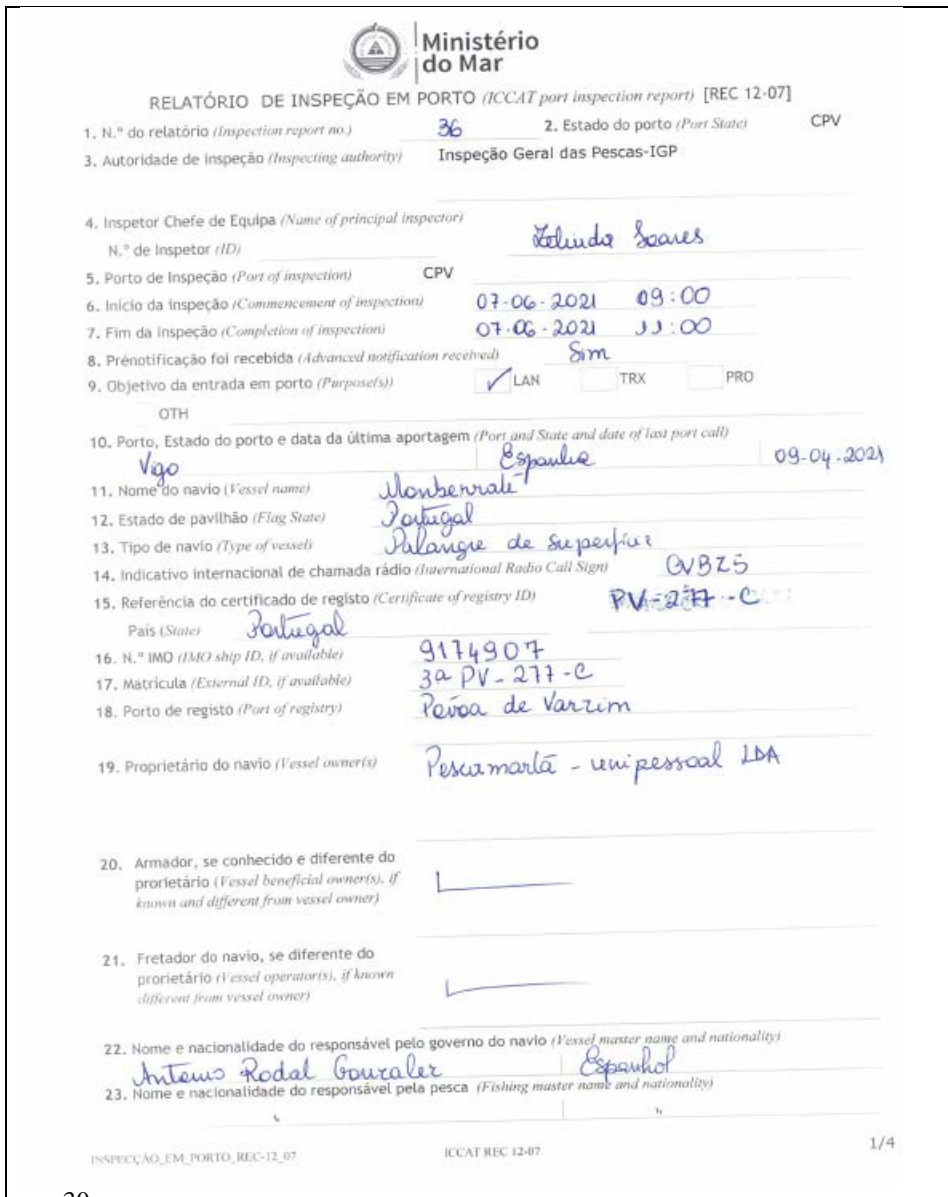 Ministério
do Mar
RELATÓRIO DE INSPEÇÃO EM PORTO (ICCAT port inspection report) [REC 12-07]
1. N.º do relatório (Inspection report no.) 36 2. Estado do porto (Port State) CPV
3. Autoridade de inspeção (Inspecting authority) Inspeção Geral das Pescas-IGP
4. Inspetor Chefe de Equipa (Name of principal inspector)
N.º de Inspetor (ID) Soares
5. Porto de Inspeção (Port of inspection) CPV
6. Início da inspeção (Commencement of inspection) 07-06-2021 09:00
7. Fim da inspeção (Completion of inspection) 07-06-2021 11:00
8. Prénotificação foi recebida (Advanced notification received) Sim
9. Objetivo da entrada em porto (Purpose(s)) ✓ LAN TRX PRO
OTH
10. Porto, Estado do porto e data da última aportagem (Port and State and date of last port call)
Vigo Espanha 09-04-2021
11. Nome do navio (Vessel name)
12. Estado de pavilhão (Flag State) Portugal
13. Tipo de navio (Type of vessel) Palangre de superfície
14. Indicativo internacional de chamada rádio (International Radio Call Sign)
15. Referência do certificado de registo (Certificate of registry ID) PV-277-C
País (State) Portugal
16. N.º IMO (IMO ship ID, if available) 9174907
17. Matrícula (External ID, if available) 3ª PV-277-C
18. Porto de registo (Port of registry) Póvoa de Varzim
19. Proprietário do navio (Vessel owner(s) Pescamartã - unipessoal LDA
20. Armador, se conhecido e diferente do
prorietário (Vessel beneficial owner(s), if
known and different from vessel owner)
21. Fretador do navio, se diferente do
prorietário (Vessel operator(s), if known
different from vessel owner)
22. Nome e nacionalidade do responsável pelo governo do navio (Vessel master name and nationality)
Rodal Gonzalez Espanhol
23. Nome e nacionalidade do responsável pela pesca (Fishing master name and nationality)
" "
INSPECÇÃO_EM_PORTO_REC-12_07 ICCAT REC 12-07 1/4